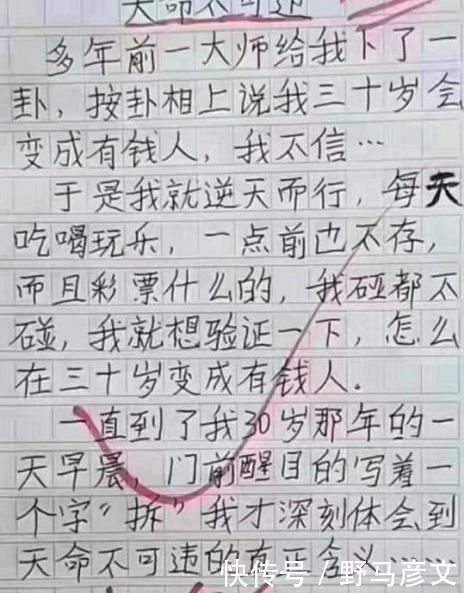 天命不可违
多年前一大师给我下了一
卦，按卦相上说我三十岁会
变成有钱人，我不信…
于是我就逆天而行，每天
吃喝玩乐，一点前也不存，
而且彩票什么的，我碰都不
碰，我就想验证一下，怎么
在三十岁变成有钱人.
一直到了我30岁那年的一
天早晨，门前醒目的写着一
个字“拆”我才深刻体会到
天命不可违的真正含义……
快传号／野马彦文